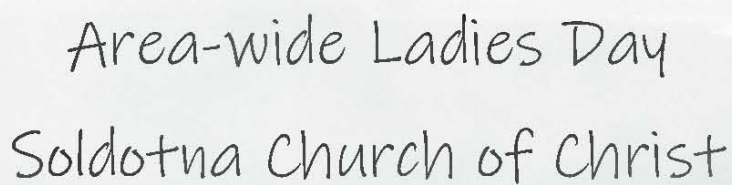 Area-wide Ladies Day
Soldotna Church of Christ